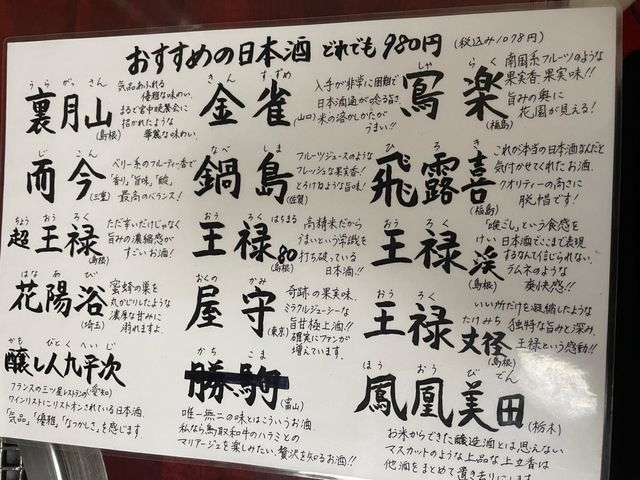 おすすめの日本酒 どれでも980円 (税込み1078円)
うらがさん
裏月山
(島根)
気品あふれる
優雅な味わい。
まるで宮中晩餐会に
招かれたような
華麗な味わい。
きんすずめ
金雀
(山口)
入手が非常に困難で
日本酒通が唸る旨さ。
米の溶かしかたが
うまい!!
しゃらく
冩楽
(福島)
南国系フルーツのような
果実香、果実味!!
旨みの奥に
花園が見える!
じこん
而今
(三重)
ベリー系のフルーティ香で
「香り」「旨味」「酸」
最高のバランス!
なべしま
鍋島
(佐賀)
フルーツジュースのような
フレッシュな果実香!
とろけるような旨味!
ひろき
飛露喜
(福島)
これが本当の日本酒なんだと
気付かせてくれたお酒。
クオリティーの高さに
脱帽です!
ちょうおうろく
超王禄
(島根)
ただ辛いだけじゃなく
旨みの濃縮感が
すごいお酒!
おうろくはちまる
王禄80
(島根)
高精米だから
うまいという常識を
打ち破っている
日本酒!!
おうろくけい
王禄渓
(島根)
「喉ごし」という食感を
日本酒でここまで表現
するなんて信じられない。
ラムネのような
爽快感!!
はなあび
花陽浴
(埼玉)
蜜蜂の巣を
丸かじりしたような
濃厚な甘みに
溺れますよ。
おくのかみ
屋守
(東京)
奇跡の果実味。
ミラクルジューシーな
旨甘極上酒!!
確実にファンが
増えています。
おうろくたけみち
王禄丈径
(島根)
いい所だけを凝縮したような
独特な旨みと深み。
王禄という感動!!
かもしびとくへいじ
醸し人九平次
(愛知)
フランスの三ツ星レストランの
ワインリストにリストオンされている日本酒。
「気品」「優雅」「なつかしさ」を感じます
かちこま
勝駒
(富山)
唯一無二の味とはこういうお酒。
私なら鳥取和牛のハラミとの
マリアージュを楽しみたい。贅沢を知るお酒!!
ほうおうびでん
鳳凰美田
(栃木)
お米からできた醸造酒とは思えない
マスカットのような上品な上立香は
他酒をまとめて置き去りにします。